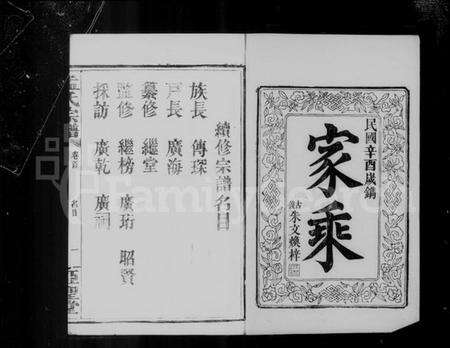 民國辛酉歲鐫
家乘
朱文煥梓
續修宗譜名目
族長 傳琛
戶長 廣海
纂修 繼堂
監修 繼榜 廣珩 昭賢
採訪 廣乾 廣祠
孟氏宗譜 卷首 名目 一 亞聖堂
FamilySearch